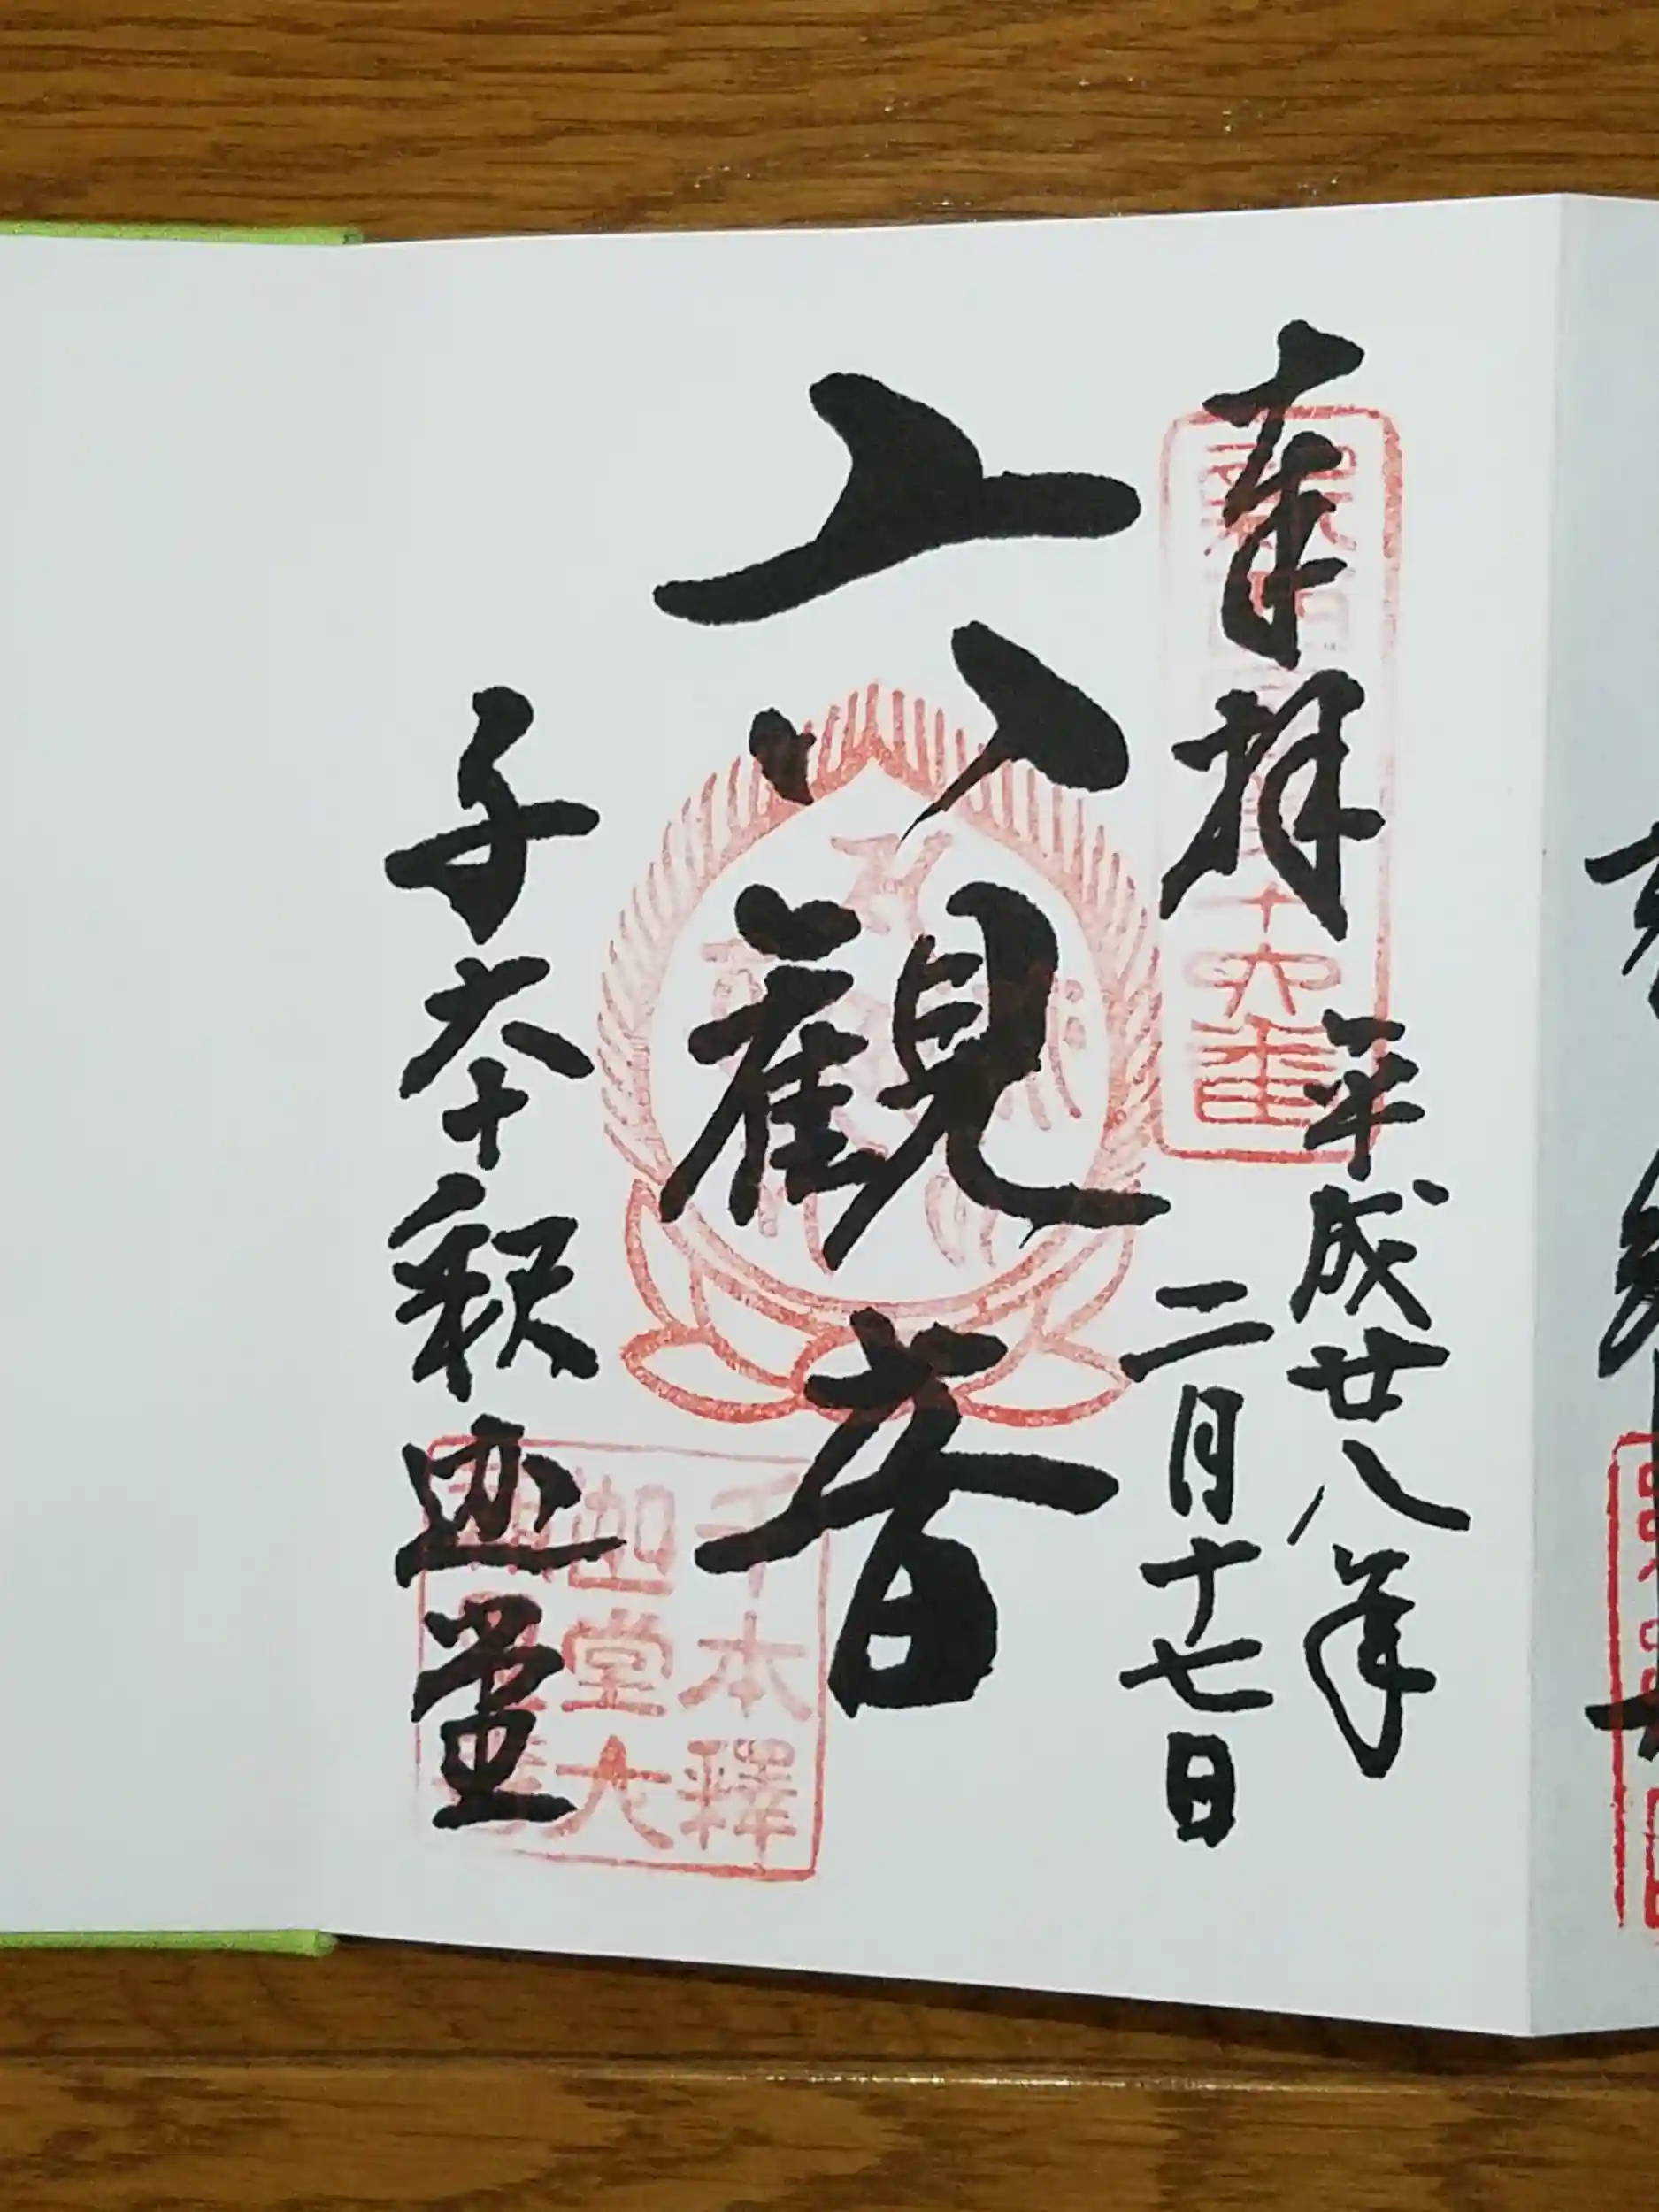 奉拝
平成廿八年
二月十七日
六観音
千本釈迦堂
十六番
千本釋
迦堂大